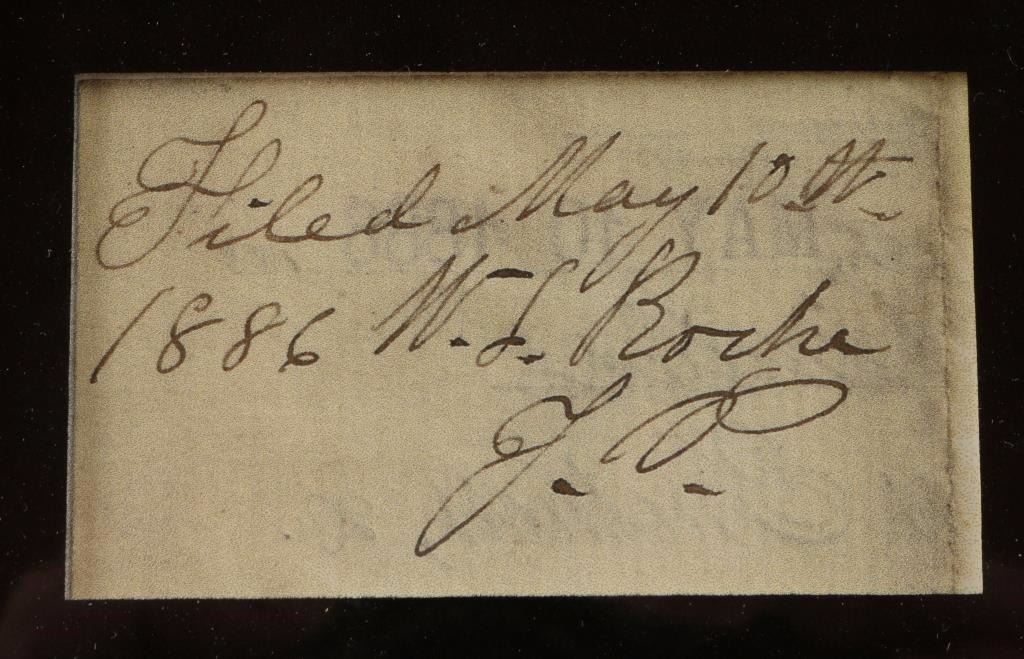 Filed May 10th.
1886 W. S. Roche
J. P.